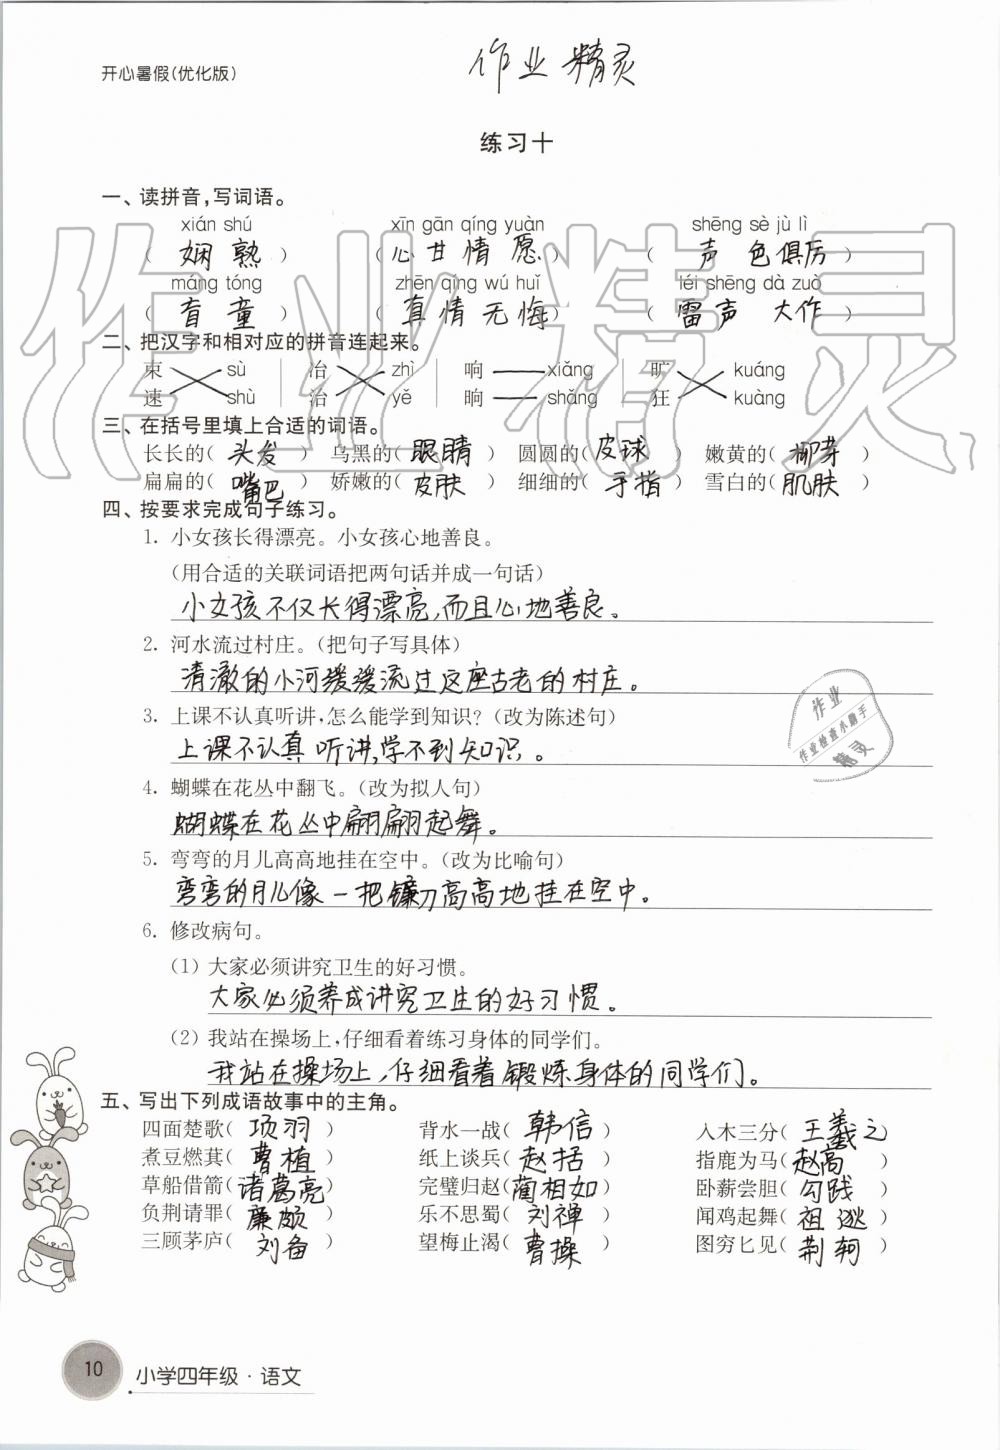 开心暑假(优化版)
作业精灵
练习十
一、读拼音,写词语。
xián shú xīn gān qíng yuàn shēng sè jù lì
( 娴熟 ) ( 心甘情愿 ) ( 声色俱厉 )
máng tóng zhēn qíng wú huǐ léi shēng dà zuò
( 盲童 ) ( 真情无悔 ) ( 雷声大作 )
二、把汉字和相对应的拼音连起来。
束 sù 冶 zhì 响 xiǎng 旷 kuáng
速 shù 治 yě 晌 shǎng 狂 kuàng
三、在括号里填上合适的词语。
长长的( 头发 ) 乌黑的( 眼睛 ) 圆圆的( 皮球 ) 嫩黄的( 柳芽 )
扁扁的( 嘴巴 ) 娇嫩的( 皮肤 ) 细细的( 手指 ) 雪白的( 肌肤 )
四、按要求完成句子练习。
1. 小女孩长得漂亮。小女孩心地善良。
(用合适的关联词语把两句话并成一句话)
小女孩不仅长得漂亮,而且心地善良。
2. 河水流过村庄。(把句子写具体)
清澈的小河缓缓流过这座古老的村庄。
3. 上课不认真听讲,怎么能学到知识?(改为陈述句)
上课不认真听讲,学不到知识。
4. 蝴蝶在花丛中翻飞。(改为拟人句)
蝴蝶在花丛中翩翩起舞。
5. 弯弯的月儿高高地挂在空中。(改为比喻句)
弯弯的月儿像一把镰刀高高地挂在空中。
6. 修改病句。
(1) 大家必须讲究卫生的好习惯。
大家必须养成讲究卫生的好习惯。
(2) 我站在操场上,仔细看着练习身体的同学们。
我站在操场上,仔细看着锻炼身体的同学们。
五、写出下列成语故事中的主角。
四面楚歌( 项羽 ) 背水一战( 韩信 ) 入木三分( 王羲之 )
煮豆燃萁( 曹植 ) 纸上谈兵( 赵括 ) 指鹿为马( 赵高 )
草船借箭( 诸葛亮 ) 完璧归赵( 蔺相如 ) 卧薪尝胆( 勾践 )
负荆请罪( 廉颇 ) 乐不思蜀( 刘禅 ) 闻鸡起舞( 祖逖 )
三顾茅庐( 刘备 ) 望梅止渴( 曹操 ) 图穷匕见( 荆轲 )
10
小学四年级·语文
作业精灵
作业
作业检查小助手
精灵